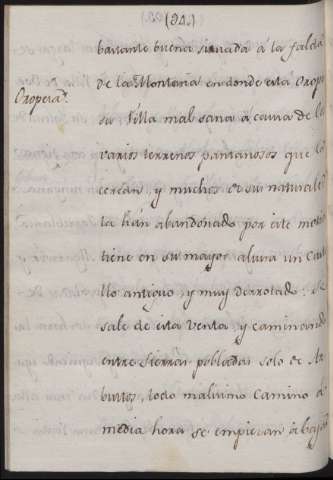 (94.)
bastante buena situada à la falda
de la Montaña en donde está Orope
Oropesa.
sa Villa mal sana à causa de los
varios terrenos pantanosos que la
cercan, y muchos de sus naturales
la han abandonado por este moti
tiene en su mayor altura un Casti
llo antiguo, y muy derrotado: Se
sale de esta venta, y caminando
entre Sierras pobladas solo de Ar
bustos, todo malisimo Camino à
media hora se empiezan à baja